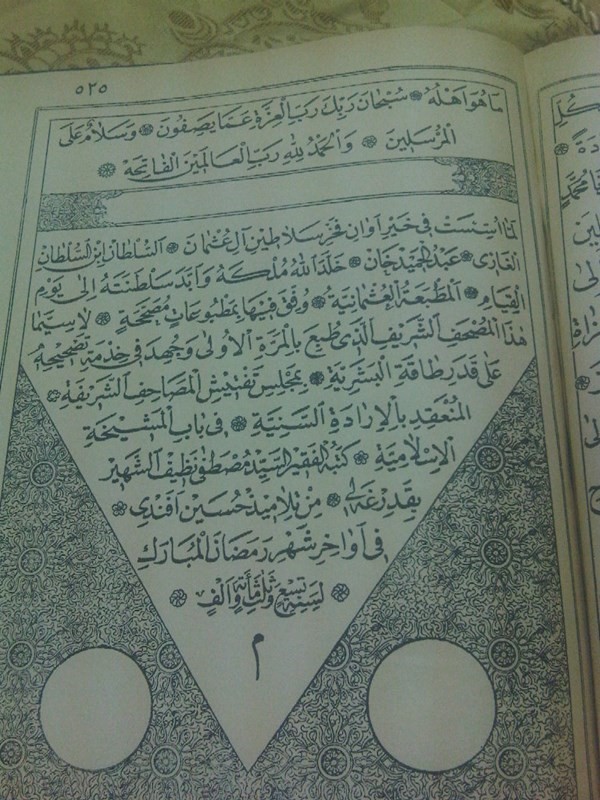 ٥٢٥
مَا هُوَ اَهْلُهُ ❁ سُبْحَانَ رَبِّكَ رَبِّ الْعِزَّةِ عَمَّا يَصِفُونَ ❁ وَسَلَامٌ عَلَى
الْمُرْسَلِينَ ❁ وَالْحَمْدُ لِلّٰهِ رَبِّ الْعَالَمِينَ الْفَاتِحَهْ ❁
لَمَّا اسِّسَتْ فِى خَيْرِ اَوَانِ فَخْرِ سَلَاطِينِ آلِ عُثْمَانَ ❁ السُّلْطَانُ ابْنُ السُّلْطَانِ
الْغَازِى ❁ عَبْدُ الْحَمِيدْ خَانْ ❁ خَلَّدَ اللهُ مُلْكَهُ وَاَبَّدَ سَلْطَنَتَهُ اِلٰى يَوْمِ
الْقِيَامِ ❁ الْمَطْبَعَةُ الْعُثْمَانِيَّةُ ❁ وَوُفِّقَ فِيهَا بِمَطْبُوعَاتٍ مُصَحَّحَةٍ ❁ لَا سِيَّمَا
هٰذَا الْمُصْحَفُ الشَّرِيفُ الَّذِى طُبِعَ بِالْمَرَّةِ الْاُولٰى وَجُهِدَ فِى خِدْمَةِ تَصْحِيحِهِ
عَلٰى قَدْرِ طَاقَةِ الْبَشَرِيَّةِ ❁ بِمَجْلِسِ تَفْتِيشِ الْمَصَاحِفِ الشَّرِيفَةِ ❁
الْمُنْعَقِدِ بِالْاِرَادَةِ السَّنِيَّةِ ❁ فِى بَابِ الْمَشْيَخَةِ
الْاِسْلَامِيَّةِ ❁ كَتَبَهُ الْفَقِيرُ السَّيِّدُ مُصْطَفٰى نَظِيفُ الشَّهِيرُ
بِقَدِرْغَه لِى ❁ مِنْ تَلَامِيذِ حُسَيْنْ اَفَنْدِى ❁
فِى اَوَاخِرِ شَهْرِ رَمَضَانَ الْمُبَارَكِ
❁ لِسَنَةِ تِسْعٍ وَثَلٰثِمِأَةٍ وَاَلْفٍ ❁
م